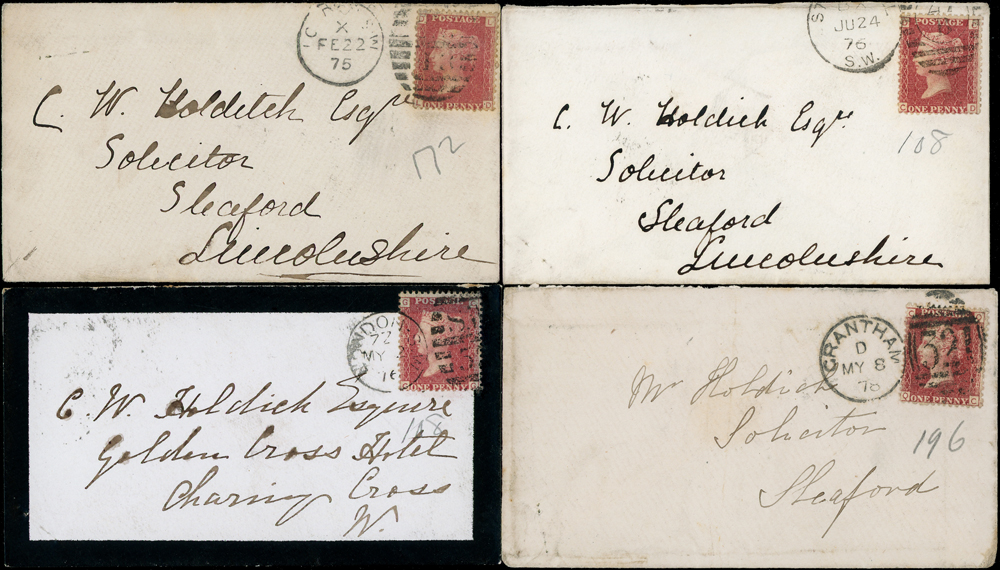 X
FE 22
75
POSTAGE
ONE PENNY
C. W. Holditch Esqre
Solicitor
Sleaford
Lincolnshire
172
JU 24
76
S.W.
POSTAGE
C ONE PENNY D
C. W. Holdich Esqre.
Solicitor
Sleaford
Lincolnshire
108
LONDON
72
MY
76
POSTAGE
ONE PENNY
C. W. Holdich Esquire
Golden Cross Hotel
Charing Cross
W.
108
GRANTHAM
D
MY 8
76
ONE PENNY
Mr Holdich
Solicitor
Sleaford
196